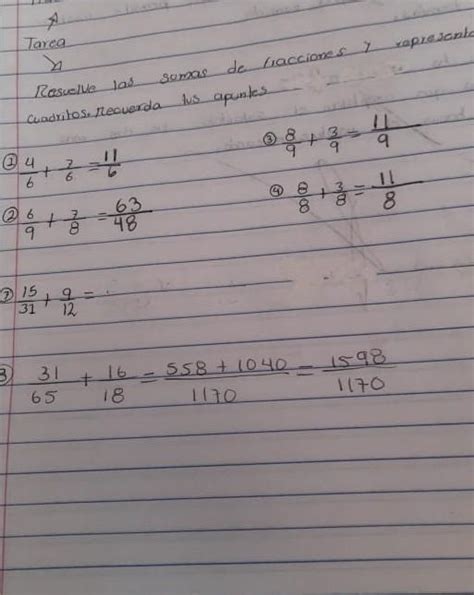 Tarea
Resuelve las sumas de fracciones y representa
cuadritos. Recuerda tus apuntes
① 4/6 + 7/6 = 11/6
③ 8/9 + 3/9 = 11/9
② 6/9 + 7/8 = 63/48
④ 8/8 + 3/8 = 11/8
15/31 + 9/12 =
31/65 + 16/18 = 558 + 1040/1170 = 1598/1170